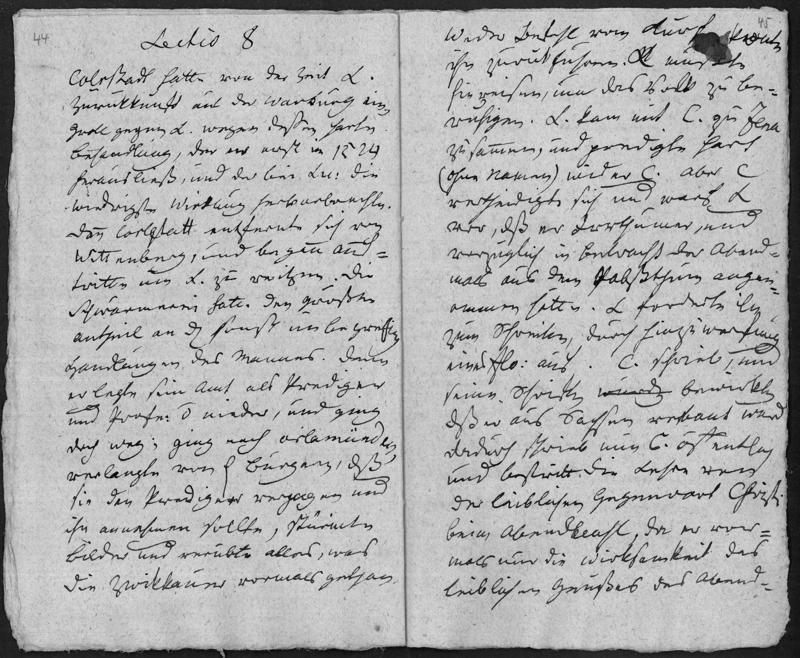 44
Lectio 8
Colestadt hatte von der Zeit L.
zurückkunft auf der Wartburg ein
groll gegen L. wegen dessen harten
behandlung, der er erst in 1524
herausließ, und der bei Lu: die
widrigste Wirkung hervorbrachte.
Dan Carlstatt entfernte sich von
Wittenberg, und begann auf=
tritte um L. zu reitzen. Die
Schwärmerei hatte den grösten
antheil an d sonst unbegreiflichen
Handlungen des Mannes. Denn
er legte sein Amt als Prediger
und Profe: nieder, und ging
doch weg: ging nach Orlamünde,
verlangte von Bürgern, daß
sie den Prediger verjagen und
ihn annehmen sollte, stürmte
bilder und verübte alles, was
die Zwikkauer vormals gethan.
45
weder Befehl vom
ihn zurückführen. L muste
hinreisen, um das Volk zu be=
ruhigen. L. kam mit C. zu Jena
zusammen, und predigte hart
(ohne Namen) wider C. Aber C
vertheidigte sich und warf L
vor, daß er Irrthümer, und
vorzüglich in betracht der Abend=
mals aus dem Pabstthum angen=
ommen hätte. L forderte ihn
zum Schreiben, durch hinzuwerfung
eines flo: aus. C. schrieb, und
seine Schriften bewirkten
daß er aus Sachsen verbant ward
dadurch schrieb nun C. öffentlich
und bestritt die Lehre von
der leiblichen Gegenwart Christi
beim Abendmahl, da er vor=
mals nur die Wirksamkeit des
leiblichen Genußes des Abend=